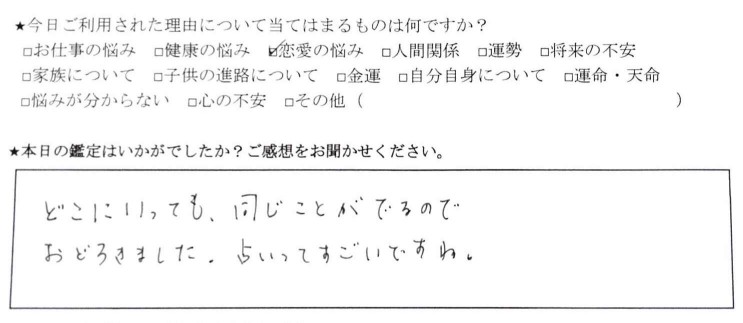 ★今日ご利用された理由について当てはまるものは何ですか？
□お仕事の悩み □健康の悩み ☑恋愛の悩み □人間関係 □運勢 □将来の不安
□家族について □子供の進路について □金運 □自分自身について □運命・天命
□悩みが分からない □心の不安 □その他（ ）
★本日の鑑定はいかがでしたか？ご感想をお聞かせください。
どこにいっても、同じことがでるので
おどろきました。占いってすごいですね。